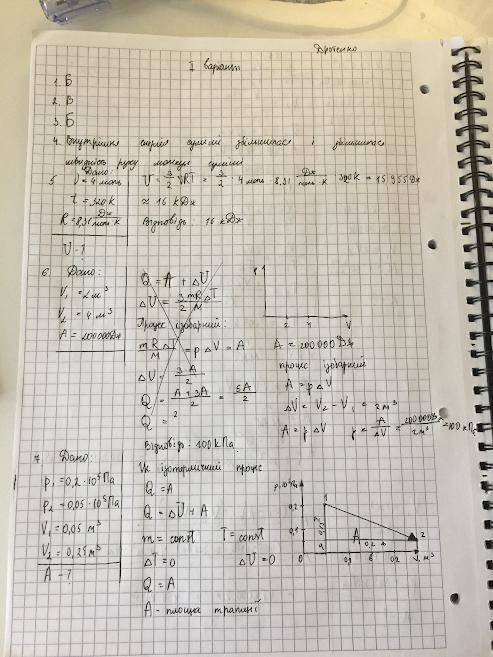 Дротенко
I варіант
1. Б
2. В
3. Б
4. Внутрішня енергія суміші збільшилася і збільшилася
швидкість руху молекул суміші
5 Дано:
V = 4 моль
t = 320 K
R = 8,31 Дж/моль K
U - ?
U = 3/2 VRT = 3/2 · 4 моль · 8,31 Дж/моль K · 320 K = 15 955 Дж
≈ 16 кДж
Відповідь: 16 кДж
6 Дано:
V₁ = 2 м³
V₂ = 4 м³
A = 200000 Дж
Q = A + ΔU
ΔU = 3/2 mR/M ΔT
Процес ізобарний:
mR/M ΔT = p ΔV = A
ΔU = 3A/2
Q = A+3A/2 = 5A/2
Q =
P
2 4 V
A = 200 000 Дж
процес ізобарний
A = p ΔV
ΔV = V₂ - V₁ = 2 м³
A = p ΔV p = A/ΔV = 200000 Дж/2 м³ = 100 кПа
Відповідь: 100 кПа
7 Дано:
p₁ = 0,2 · 10⁵ Па
p₂ = 0,05 · 10⁵ Па
V₁ = 0,05 м³
V₂ = 0,25 м³
A - ?
ізотермічний процес
Q = A
Q = ΔU + A
m = const T = const
ΔT = 0 ΔU = 0
Q = A
A - площа трапеції
p, 10⁵ Па
0,2
0,1
0
1
2
A
V, м³